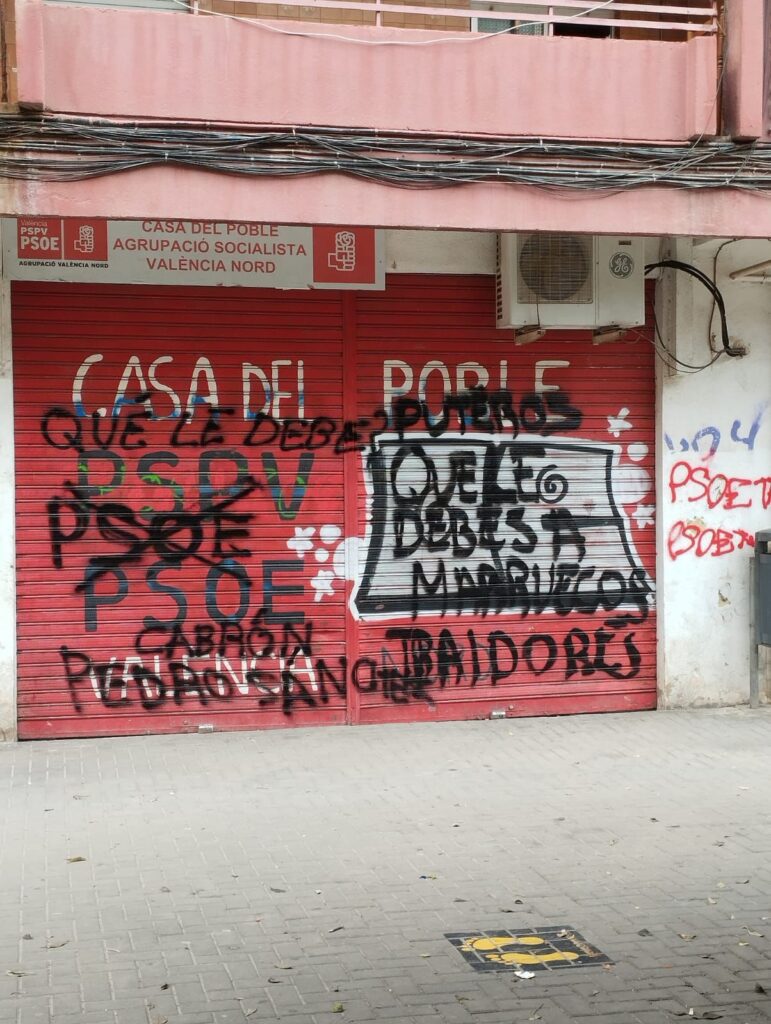 València
PSPV
PSOE
AGRUPACIÓ VALÈNCIA NORD
CASA DEL POBLE
AGRUPACIÓ SOCIALISTA
VALÈNCIA NORD
GE
CASA DEL POBLE
QUÉ LE DEBE?
PUTEROS
PSPV
QUE LE
DEBES A
MARRUECOS
PSOE
PSOE
CABRÓN
VALÈNCIA
TRAIDORES
PSOE
PSOE